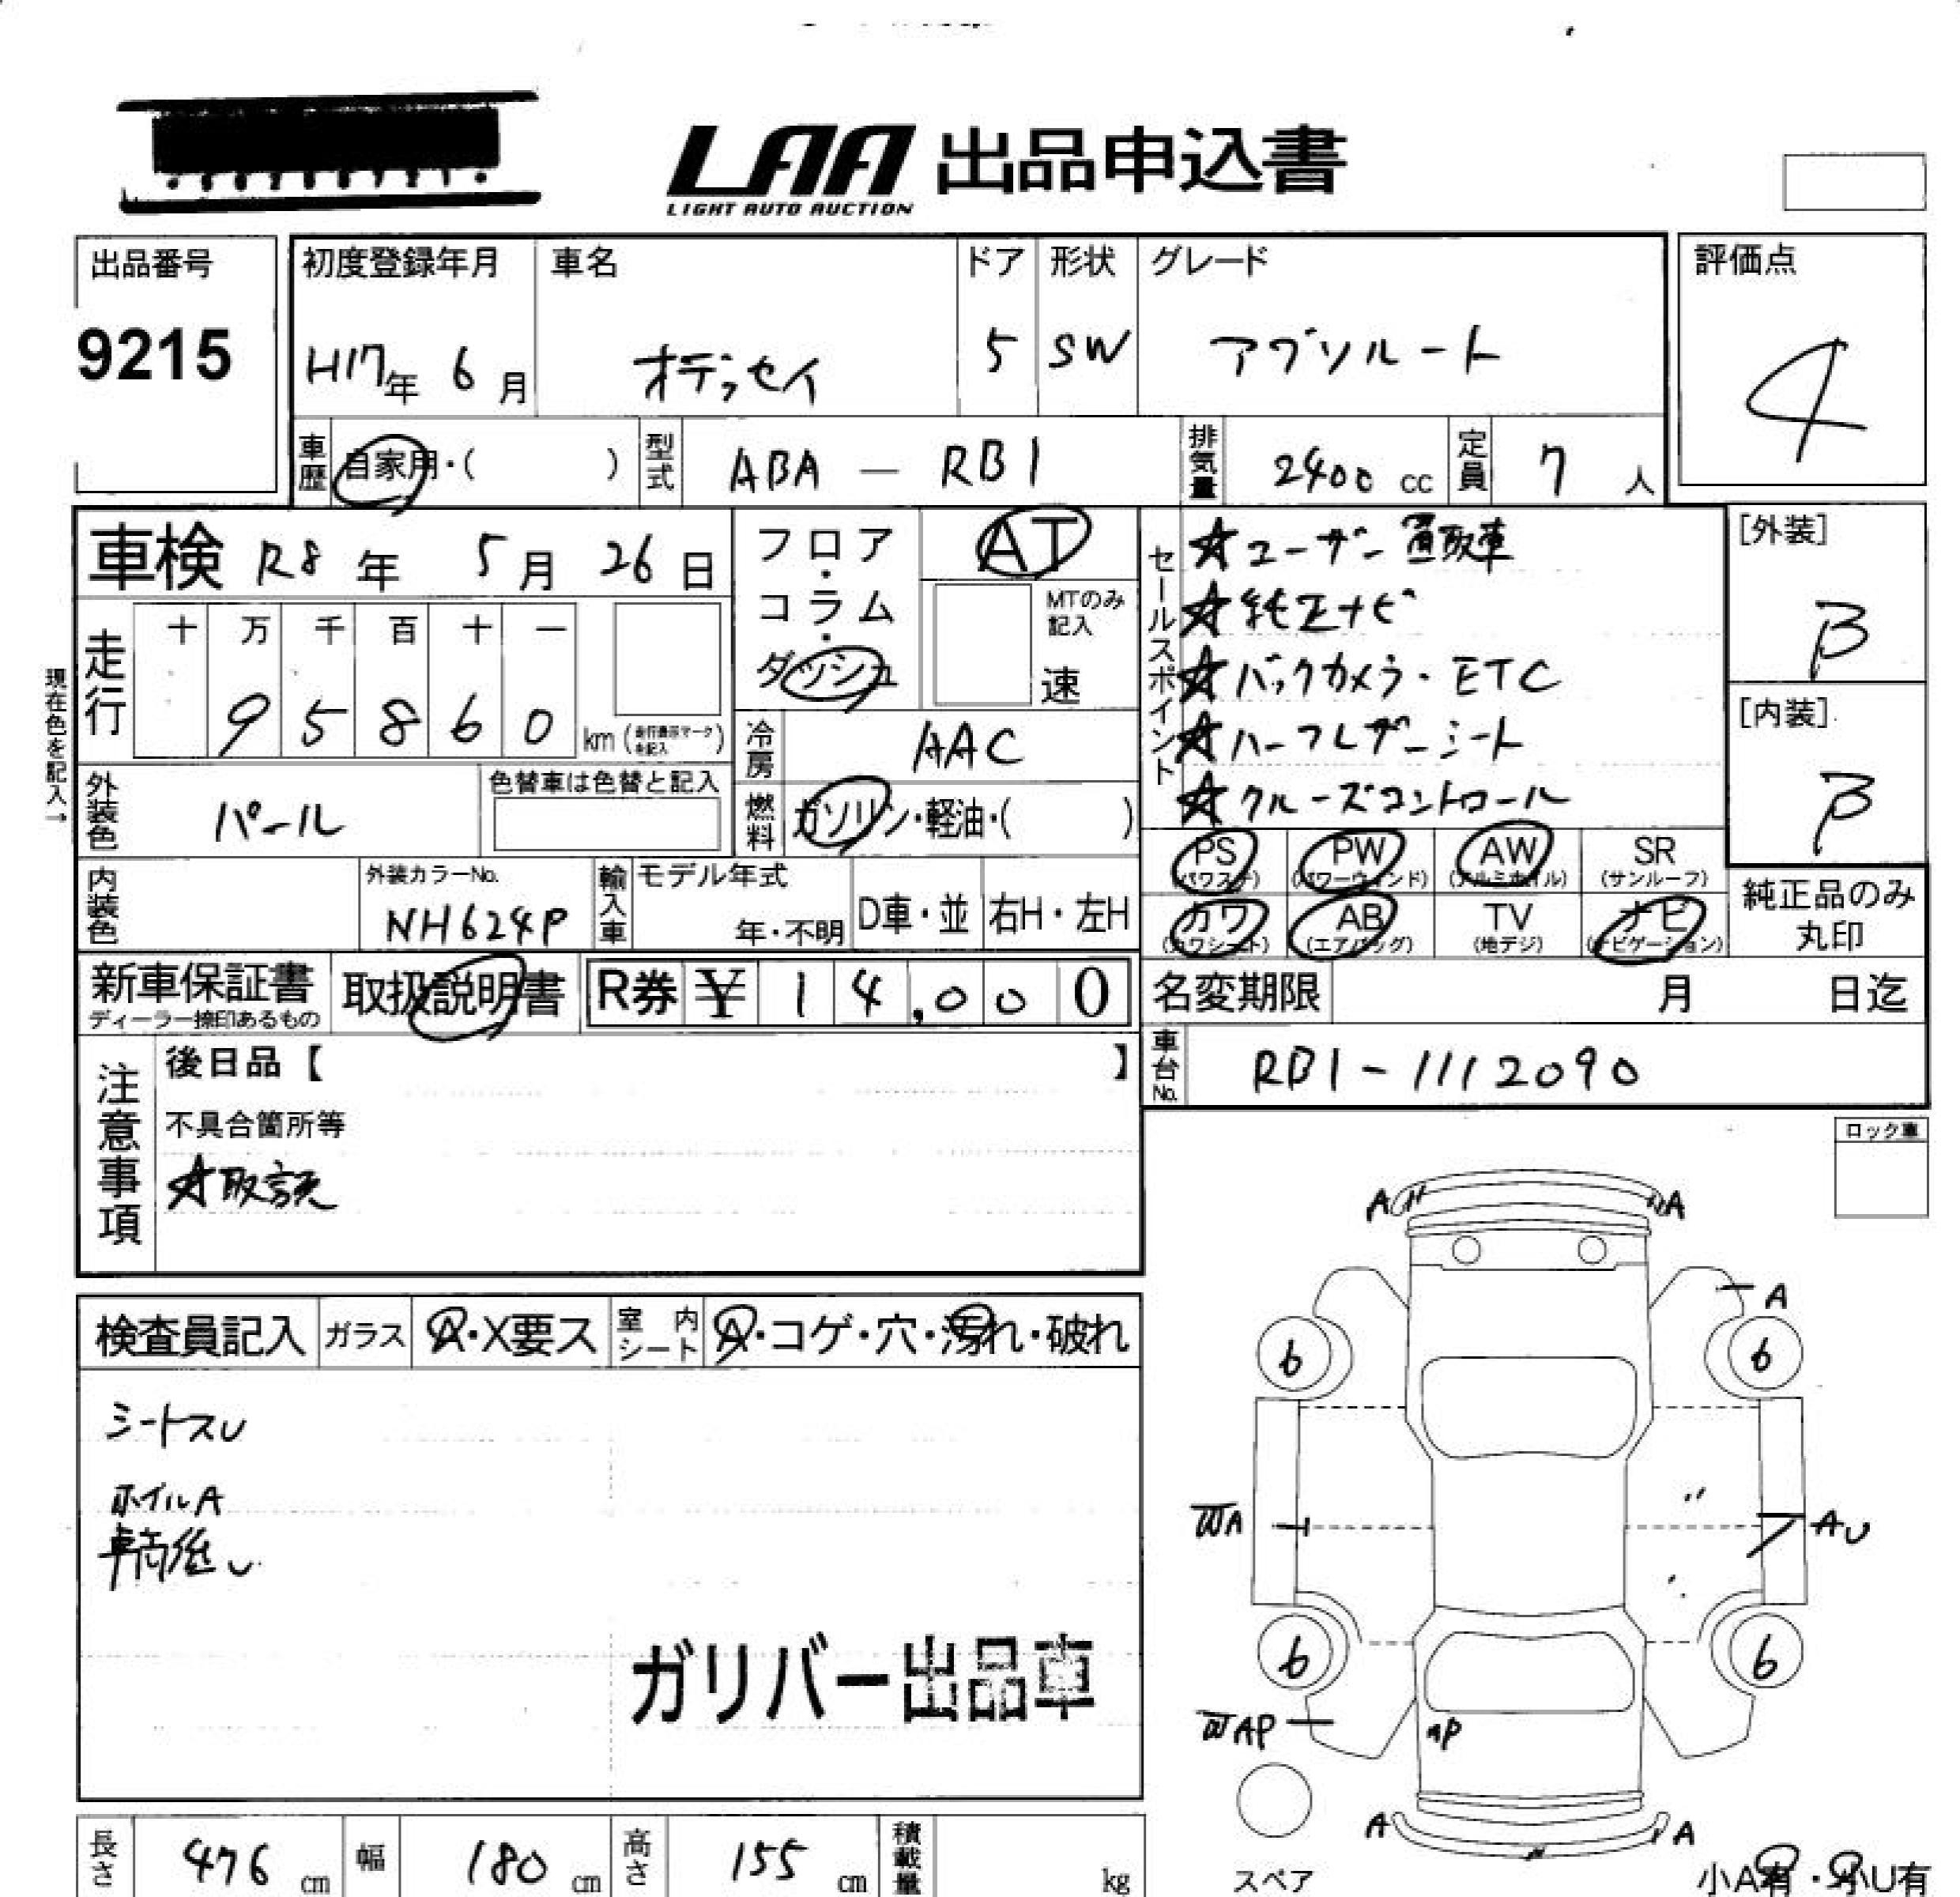 LAA 出品申込書
LIGHT AUTO AUCTION
出品番号
9215
初度登録年月
H17年 6月
車名
オデッセイ
ドア
5
形状
SW
グレード
アブソルート
評価点
4
車歴
自家用・( )
型式
ABA - RB1
排気量
2400 cc
定員
7 人
車検 R8年 5月 26日
フロア・コラム・ダッシュ
AT
MTのみ記入
速
セールスポイント
☆ユーザー買取車
☆純正ナビ
☆バックカメラ・ETC
☆ハーフレザーシート
☆クルーズコントロール
[外装]
B
[内装]
B
現在色を記入→
走行
十 万 千 百 十 一
9 5 8 6 0 km (走行表示マークを記入)
冷房
AAC
外装色
パール
色替車は色替と記入
燃料
ガソリン・軽油・( )
PS (パワステ)
PW (パワーウィンド)
AW (アルミホイル)
SR (サンルーフ)
カワ (カワシート)
AB (エアバッグ)
TV (地デジ)
ナビ (ナビゲーション)
純正品のみ丸印
内装色
外装カラーNo.
NH624P
輸入車
モデル年式
年・不明
D車・並
右H・左H
新車保証書
ディーラー捺印あるもの
取扱説明書
R券 ¥ 14,000
名変期限 月 日迄
車台No.
RB1-1112090
注意事項
後日品【 】
不具合箇所等
☆取説
ロック車
検査員記入
ガラス
A・X要ス
室内シート
A・コゲ・穴・汚れ・破れ
シートスレ
ホイルA
車高低し
ガリバー出品車
A A
A
6 6
WA AU
6 6
WAP AP
A A
スペア
小A有・小U有
長さ
476 cm
幅
180 cm
高さ
155 cm
積載量
kg